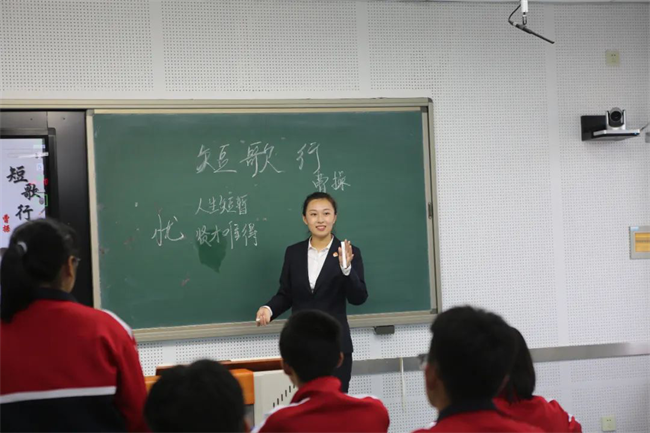 短"歌"行
曹操
人生短暂
忧
贤才难得
短
歌
行
曹操